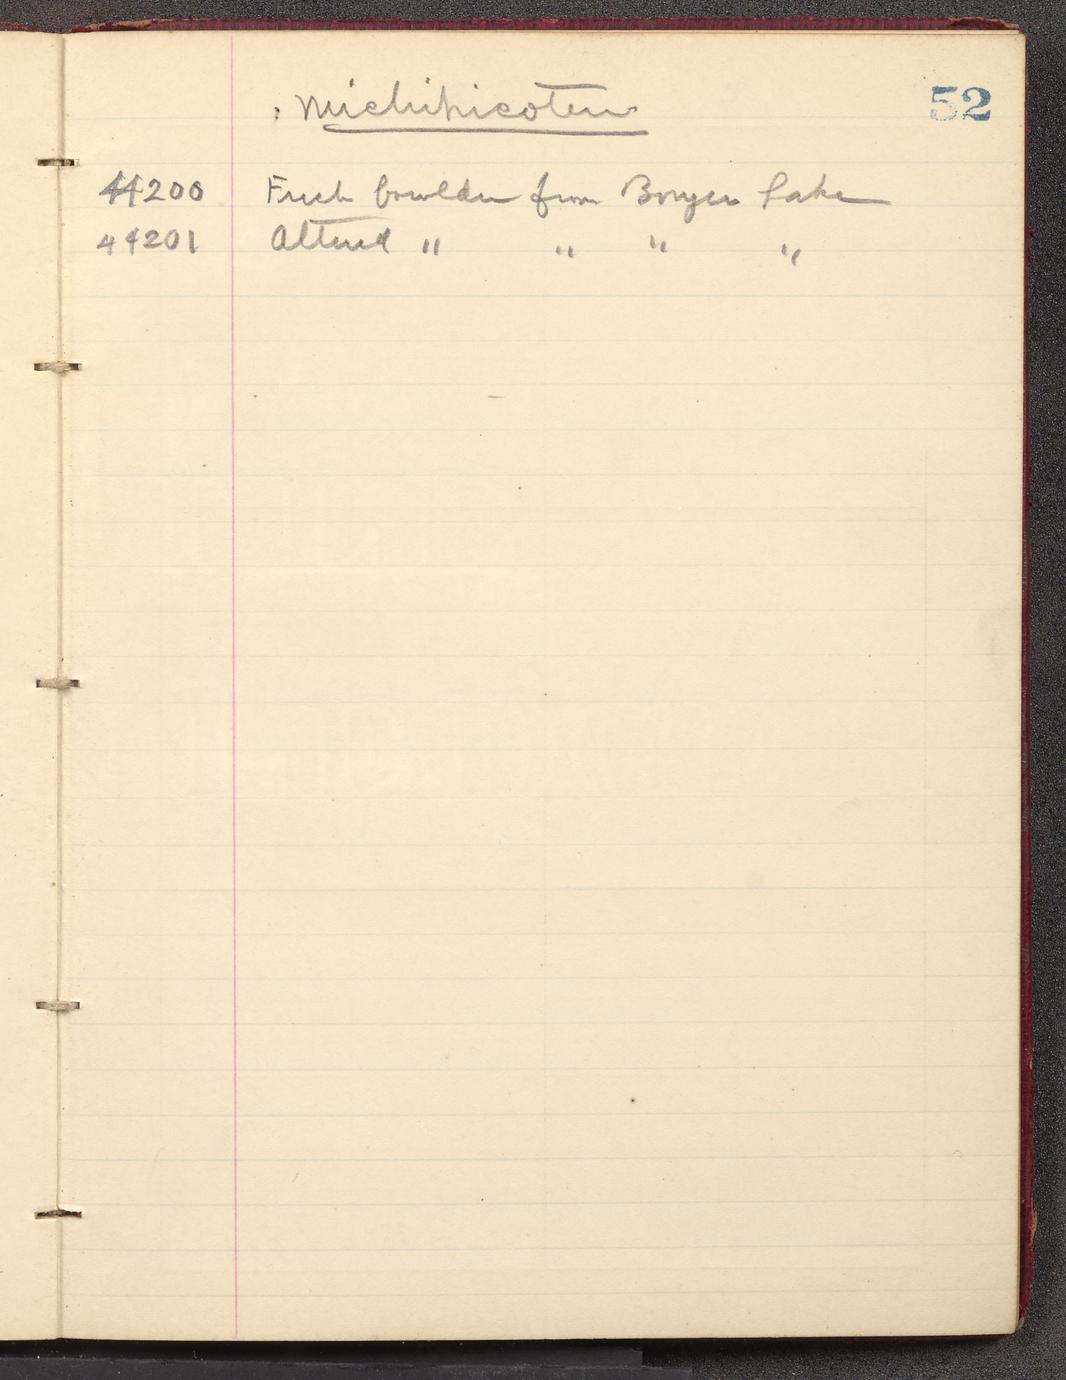 52
Michipicoten
44200 Fresh boulder from Boyer Lake
44201 Altered " " " "